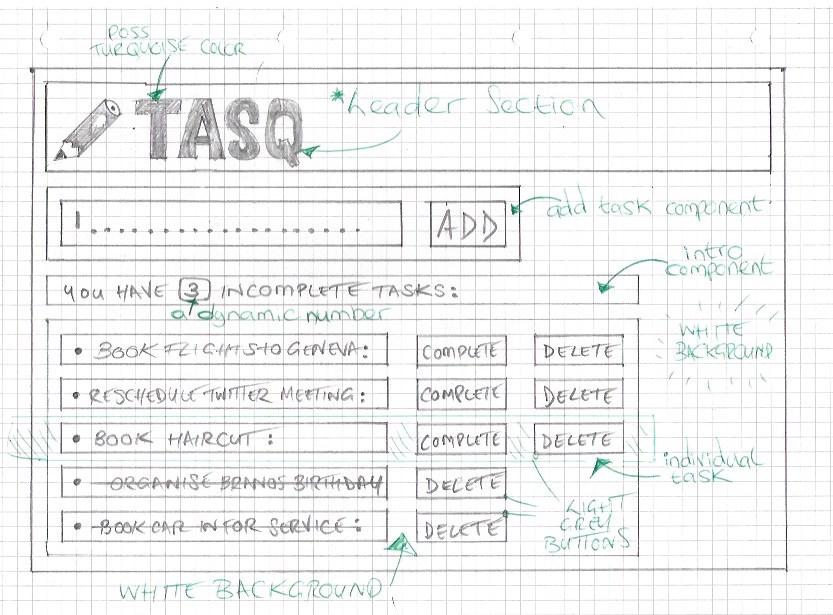 POSS
TURQUOISE COLOR
TASQ
*header Section
ADD
add task component
intro
component
YOU HAVE 3 INCOMPLETE TASKS:
a dynamic number
WHITE
BACKGROUND
• BOOK FLIGHTS TO GENEVA:
COMPLETE
DELETE
• RESCHEDULE TWITTER MEETING:
COMPLETE
DELETE
• BOOK HAIRCUT:
COMPLETE
DELETE
individual
task
• ORGANISE BRANOS BIRTHDAY
DELETE
• BOOK CAR IN FOR SERVICE:
DELETE
LIGHT
GREY
BUTTONS
WHITE BACKGROUND